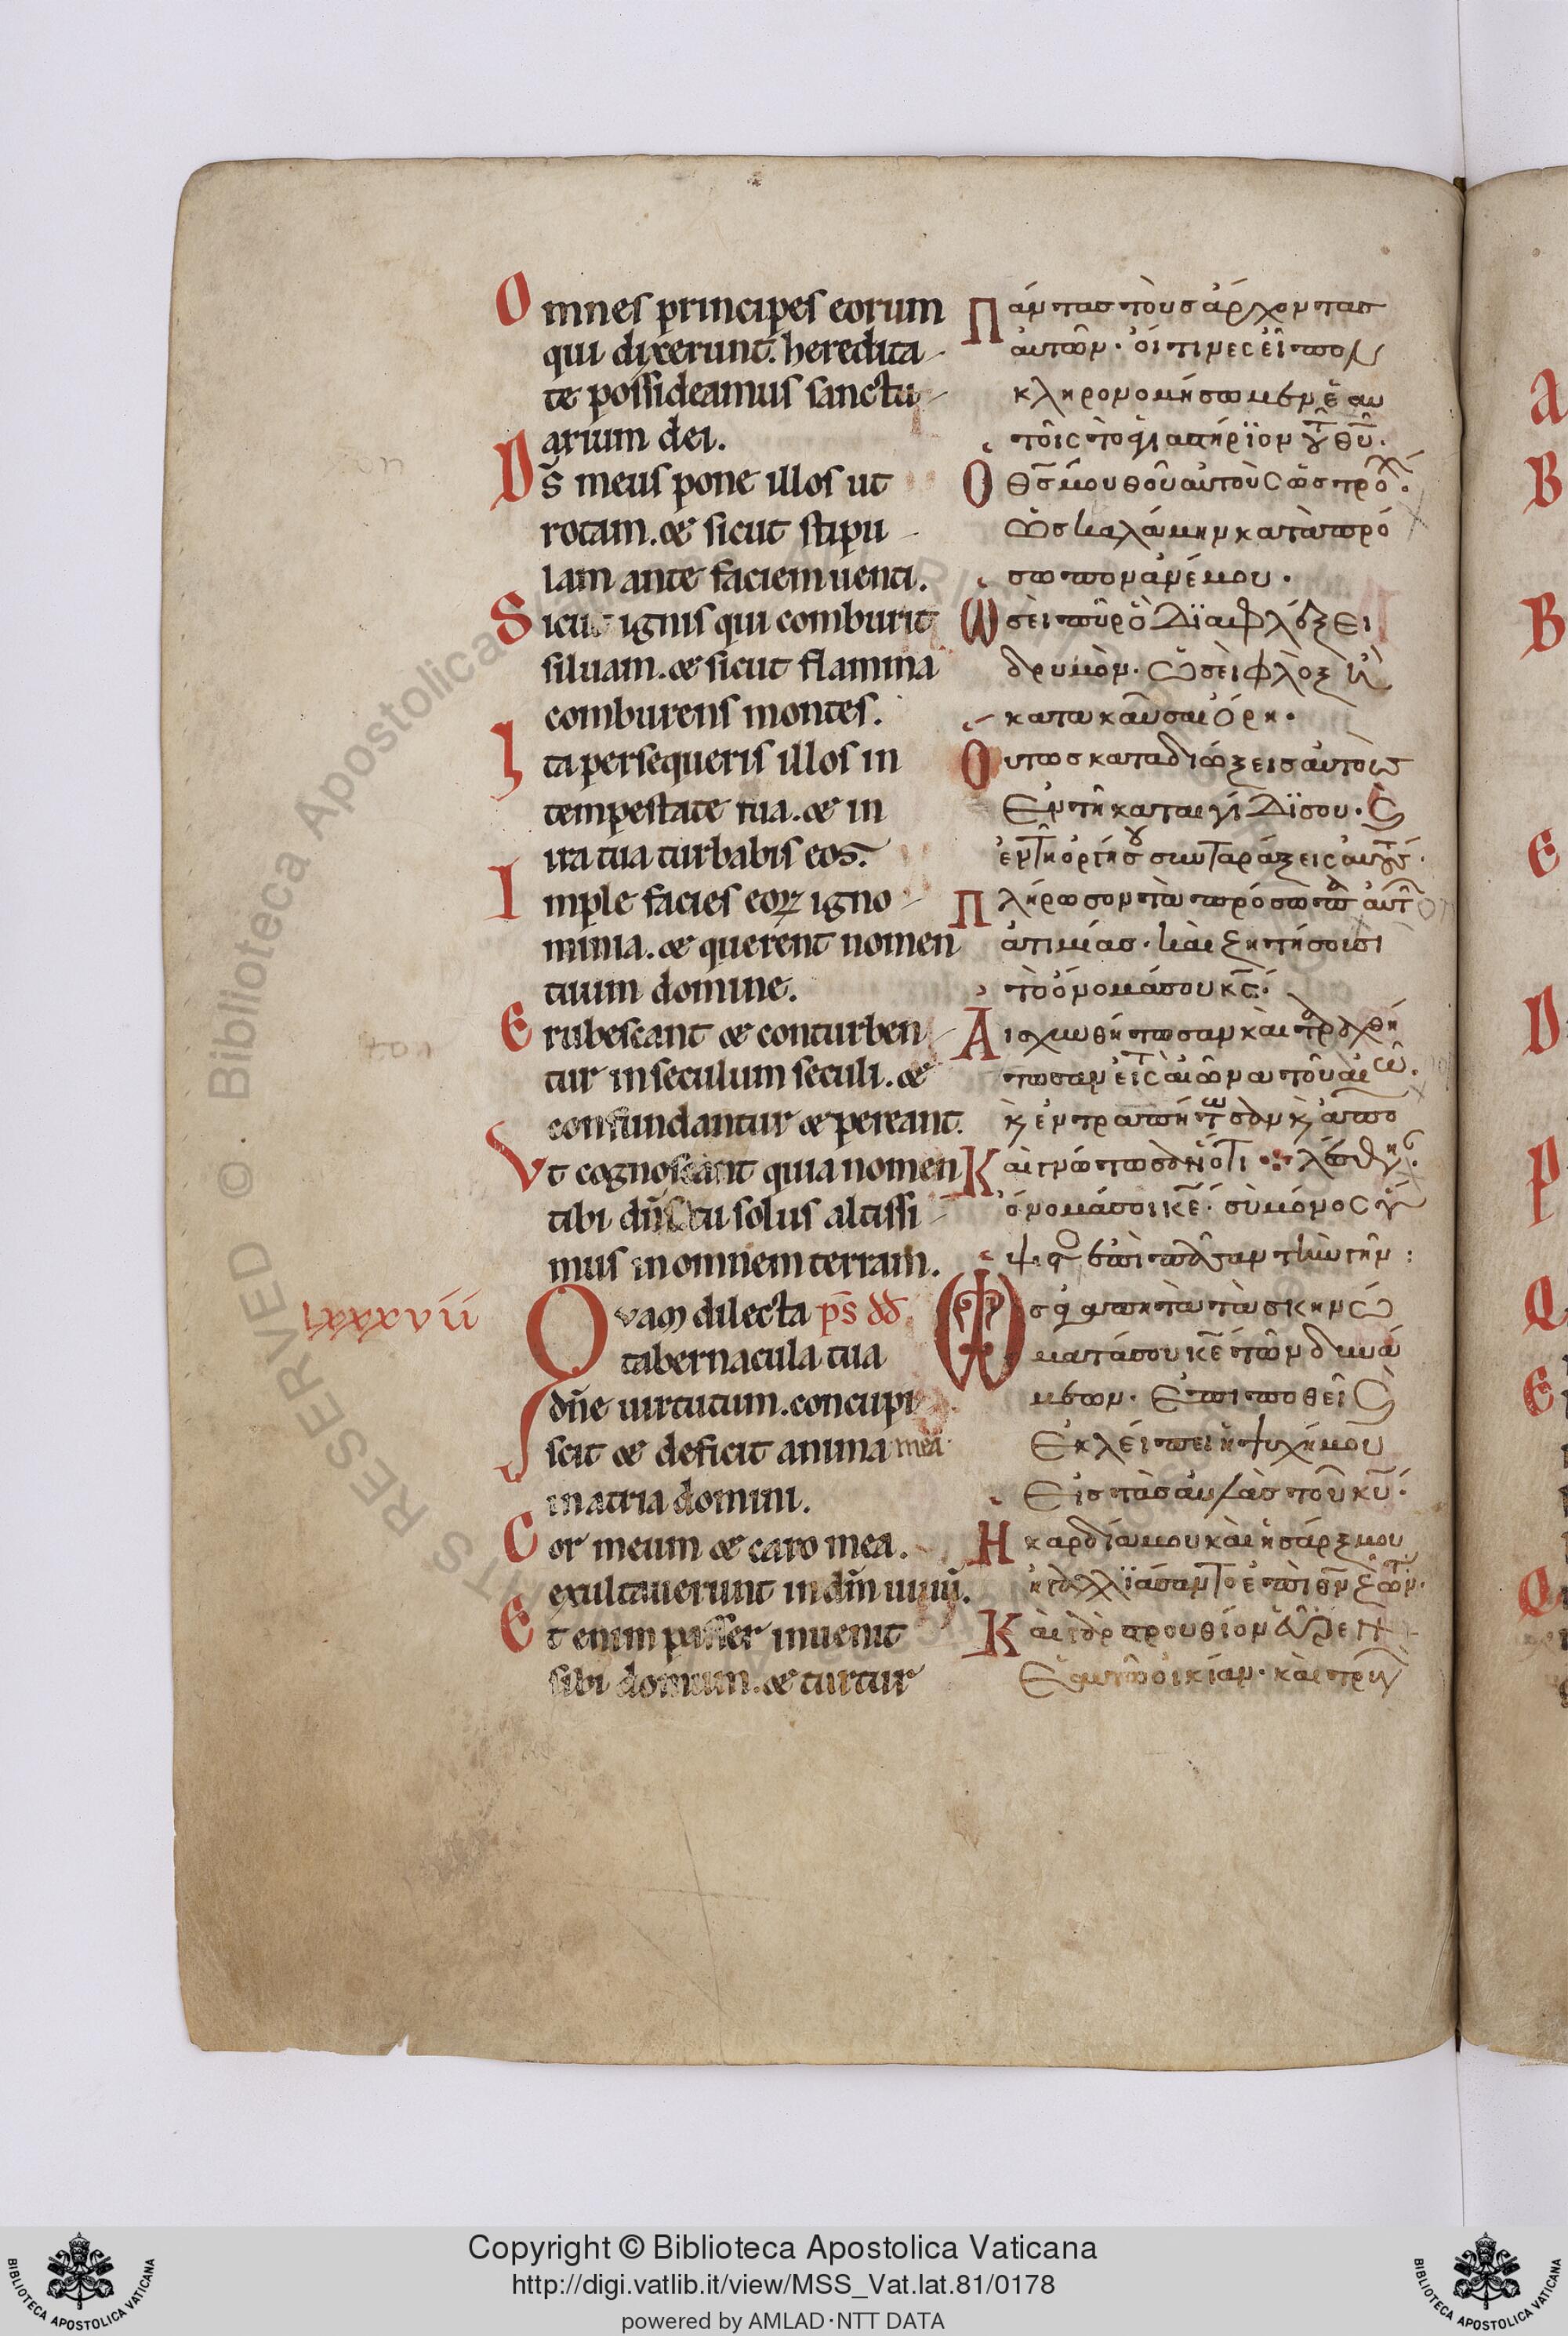 Omnes principes eorum
qui dixerunt. heredita-
te possideamus sanctu-
arium dei.
Ds̄ meus pone illos ut
rotam. & sicut stipu-
lam ante faciem uenti.
Sicut ignis qui comburit
siluam. & sicut flamma
comburens montes.
Ita persequeris illos in
tempestate tua. & in
ira tua turbabis eos.
Imple facies eoꝝ igno-
minia. & querent nomen
tuum domine.
Erubescant & conturben-
tur in seculum seculi. &
confundantur & pereant.
Vt cognoscant quia nomen
tibi dn̄s tu solus altissi-
mus in omnem terram.
lxxxvii
Qvam dilecta ps̄ dd
tabernacula tua
dn̄e uirtutum. concupi-
scit & deficit anima mea
in atria domini.
Cor meum & caro mea.
exultauerunt in dm̄ uiuū.
Etenim passer inuenit
sibi domum. & turtur
Πάντασ τὸυσ ἄρχοντασ
ἀυτῶν· ὅιτινες ἐῖπον
κληρονομήσωμεν ἑαυ
τοῖς τὸ ἁγιαστήρϊον τοῦ θῦ·
Ὁ θς̄ μου θοῦ ἀυτοὺς ὡς τροχόν·
ὡσ καλάμην κατὰ πρό
σωπον ἀνέμου·
Ὡσεὶ πῦρ ὃ Δϊαφλέξει
δρυμὸν· ὡσεὶ φλὸξ ἡ
κατακαῦσαι ὄρη·
Ὅυτωσ καταδιώξεισ ἀυτοὺσ
Ἐν τῆ καταιγίΔϊ σου· καὶ
ἐν τῆ ὀργῆ σου συνταράξεις ἀυτούς·
Πλήρωσον τὰ πρόσωπα ἀυτῶν
ἀτιμίασ· καὶ ζητήσουσι
τὸ ὄνομά σου κε̄·
Αισχυνθήτωσαν καὶ ταραχθή
τωσαν εἰς τὸν αἰῶνα τοῦ αἰῶ·
κ̀ ἐντραπήτωσαν κ̀ ἀπο
Καὶ γνώτωσαν ὅτι λέσθωσ·
ὄνομά σοι κε̄· σὺ μόνος ὕ
ψιστος ἐπὶ πᾶσαν τὴν γῆν:
Ὡσ ἀγαπητὰ τὰ σκηνώ
ματά σου κε̄ τῶν δυνά
μεων· Ἐπιποθεῖ καὶ
Ἐκλέιπει ἡ ψυχή μου
Εἰσ τὰσ ἀυλὰσ τοῦ κῦ·
Ἡ καρδία μου καὶ ἡ σάρξ μου
ἠγαλλϊάσαντο ἐπὶ θν̄ ζῶντ·
Καὶ γὰρ στρουθίον ἕυρεν
Ἑαυτῶ οἰκίαν· καὶ τρυγ
Copyright © Biblioteca Apostolica Vaticana
http://digi.vatlib.it/view/MSS_Vat.lat.81/0178
powered by AMLAD·NTT DATA